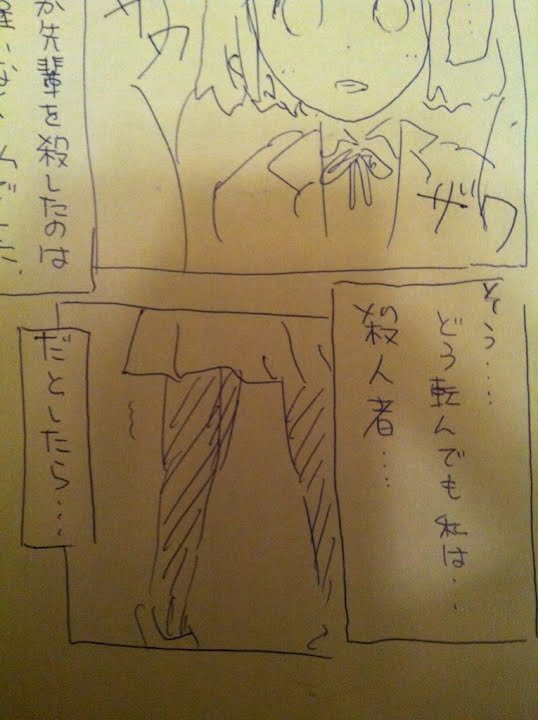 ザワ
ザワ
か先輩を殺したのは
そう.....
どう転んでも私は..
殺人者...
だとしたら...